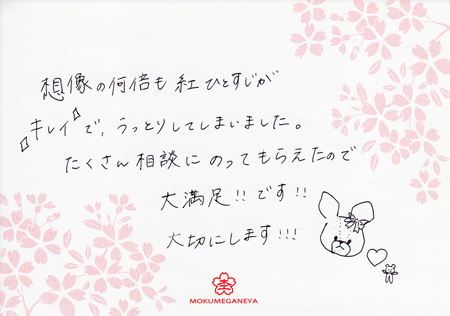 想像の何倍も紅ひとすじが
『キレイ』で、うっとりしてしまいました。
たくさん相談にのってもらえたので
大満足!!です!!
大切にします!!!
MOKUMEGANEYA